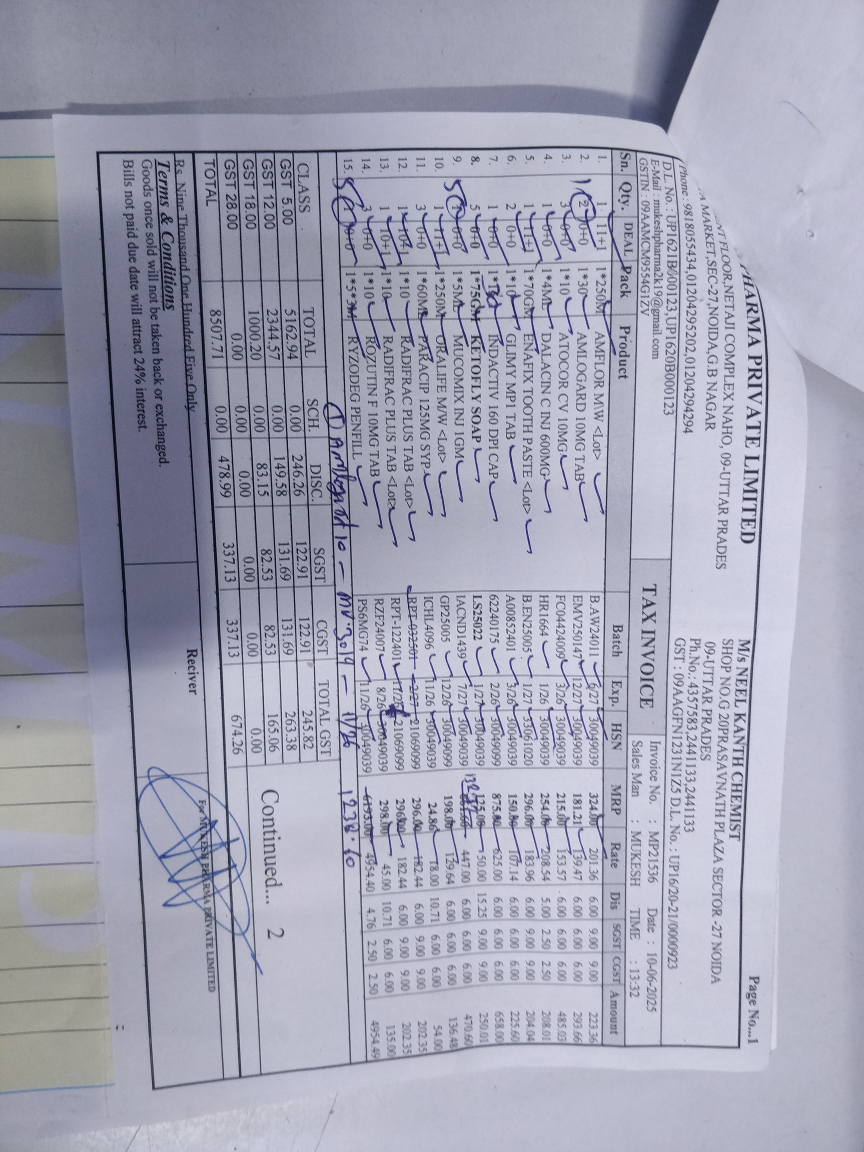 PHARMA PRIVATE LIMITED
FLOOR,NETAJI COMPLEX NAHO, 09-UTTAR PRADES
A MARKET,SEC-27,NOIDA,G.B NAGAR
Phone : 9818055434,01204295202,01204294294
D.L. No. : UP1621B000123,UP1620B000123
E-Mail : mukeshpharma2k19@gmail.com
GSTIN : 09AAMCM9554G1ZV
Page No...1
M/s NEEL KANTH CHEMIST
SHOP NO.G 20PRASAVNATH PLAZA SECTOR -27 NOIDA
09-UTTAR PRADES
Ph.No.: 4357583,2441133,2441133
GST : 09AAGFN1231N1Z5 D.L. No.: UP16/20-21/0000923
TAX INVOICE
Invoice No. : MP21536 Date : 10-06-2025
Sales Man : MUKESH TIME : 13:32
Sn. Qty. DEAL Pack Product Batch Exp. HSN MRP Rate Dis SGST CGST Amount
1. 1 11+1 1*250M AMFLOR M\W <Lot> B.AW24011 6/27 30049039 324.00 201.36 6.00 9.00 9.00 223.36
2. 2 0+0 1*30 AMLOGARD 10MG TAB EMV250147 12/27 30049039 181.21 139.47 6.00 6.00 6.00 293.66
3. 3 0+0 1*10 ATOCOR CV 10MG FC04424009 3/26 30049039 215.00 153.57 6.00 6.00 6.00 485.03
4. 1 0+0 1*4ML DALACIN C INJ 600MG HR1664 1/26 30049039 254.06 208.54 5.00 2.50 2.50 208.01
5. 1 11+1 1*70GM ENAFIX TOOTH PASTE <Lot> B.EN25005 1/27 33061020 296.00 183.96 6.00 9.00 9.00 204.04
6. 2 0+0 1*10 GLIMY MP1 TAB A00852401 3/26 30049039 150.80 107.14 6.00 6.00 6.00 225.60
7. 1 0+0 INDACTIV 160 DPI CAP 62240175 2/26 30049099 875.00 625.00 6.00 6.00 6.00 658.00
8. 5 0+0 1*75GM KETOFLY SOAP LS25022 1/27 30049039 125.00 50.00 15.25 9.00 9.00 250.01
9. 0+0 1*5ML MUCOMIX INJ 1GM IACND11439 7/27 30049039 447.00 6.00 6.00 6.00 470.60
10. 1 11+1 1*250M ORALIFE M/W <Lot> GP25005 12/26 30049099 198.00 129.64 6.00 6.00 6.00 136.48
11. 3 0+0 1*60ML PARACIP 125MG SYP ICHL4096 11/26 30049039 24.86 18.00 10.71 6.00 6.00 54.00
12. 1 10+1 1*10 RADIFRAC PLUS TAB <Lot> RPT-032501 2/27 21069099 296.00 182.44 6.00 9.00 9.00 202.35
13. 1 10+1 1*10 RADIFRAC PLUS TAB <Lot> RPT-122401 11/26 21069099 296.00 182.44 6.00 9.00 9.00 202.35
14. 3 0+0 1*10 ROZUTIN F 10MG TAB RZF24007 8/26 30049039 298.00 45.00 10.71 6.00 6.00 135.00
15. 0+0 RYZODEG PENFILL PS6MG74 11/26 30049039 4954.40 4.76 2.50 2.50 4954.49
① Amlogard 10 - MV3019 - 11/26 1238.10
CLASS TOTAL SCH. DISC. SGST CGST TOTAL GST
GST 5.00 5162.94 0.00 246.26 122.91 122.91 245.82
GST 12.00 2344.57 0.00 149.58 131.69 131.69 263.38
GST 18.00 1000.20 0.00 83.15 82.53 82.53 165.06
GST 28.00 0.00 0.00 0.00 0.00 0.00 0.00
TOTAL 8507.71 0.00 478.99 337.13 337.13 674.26
Continued... 2
Rs. Nine Thousand One Hundred Five Only
Terms & Conditions
Goods once sold will not be taken back or exchanged.
Bills not paid due date will attract 24% interest.
Reciver
For MUKESH PHARMA PRIVATE LIMITED